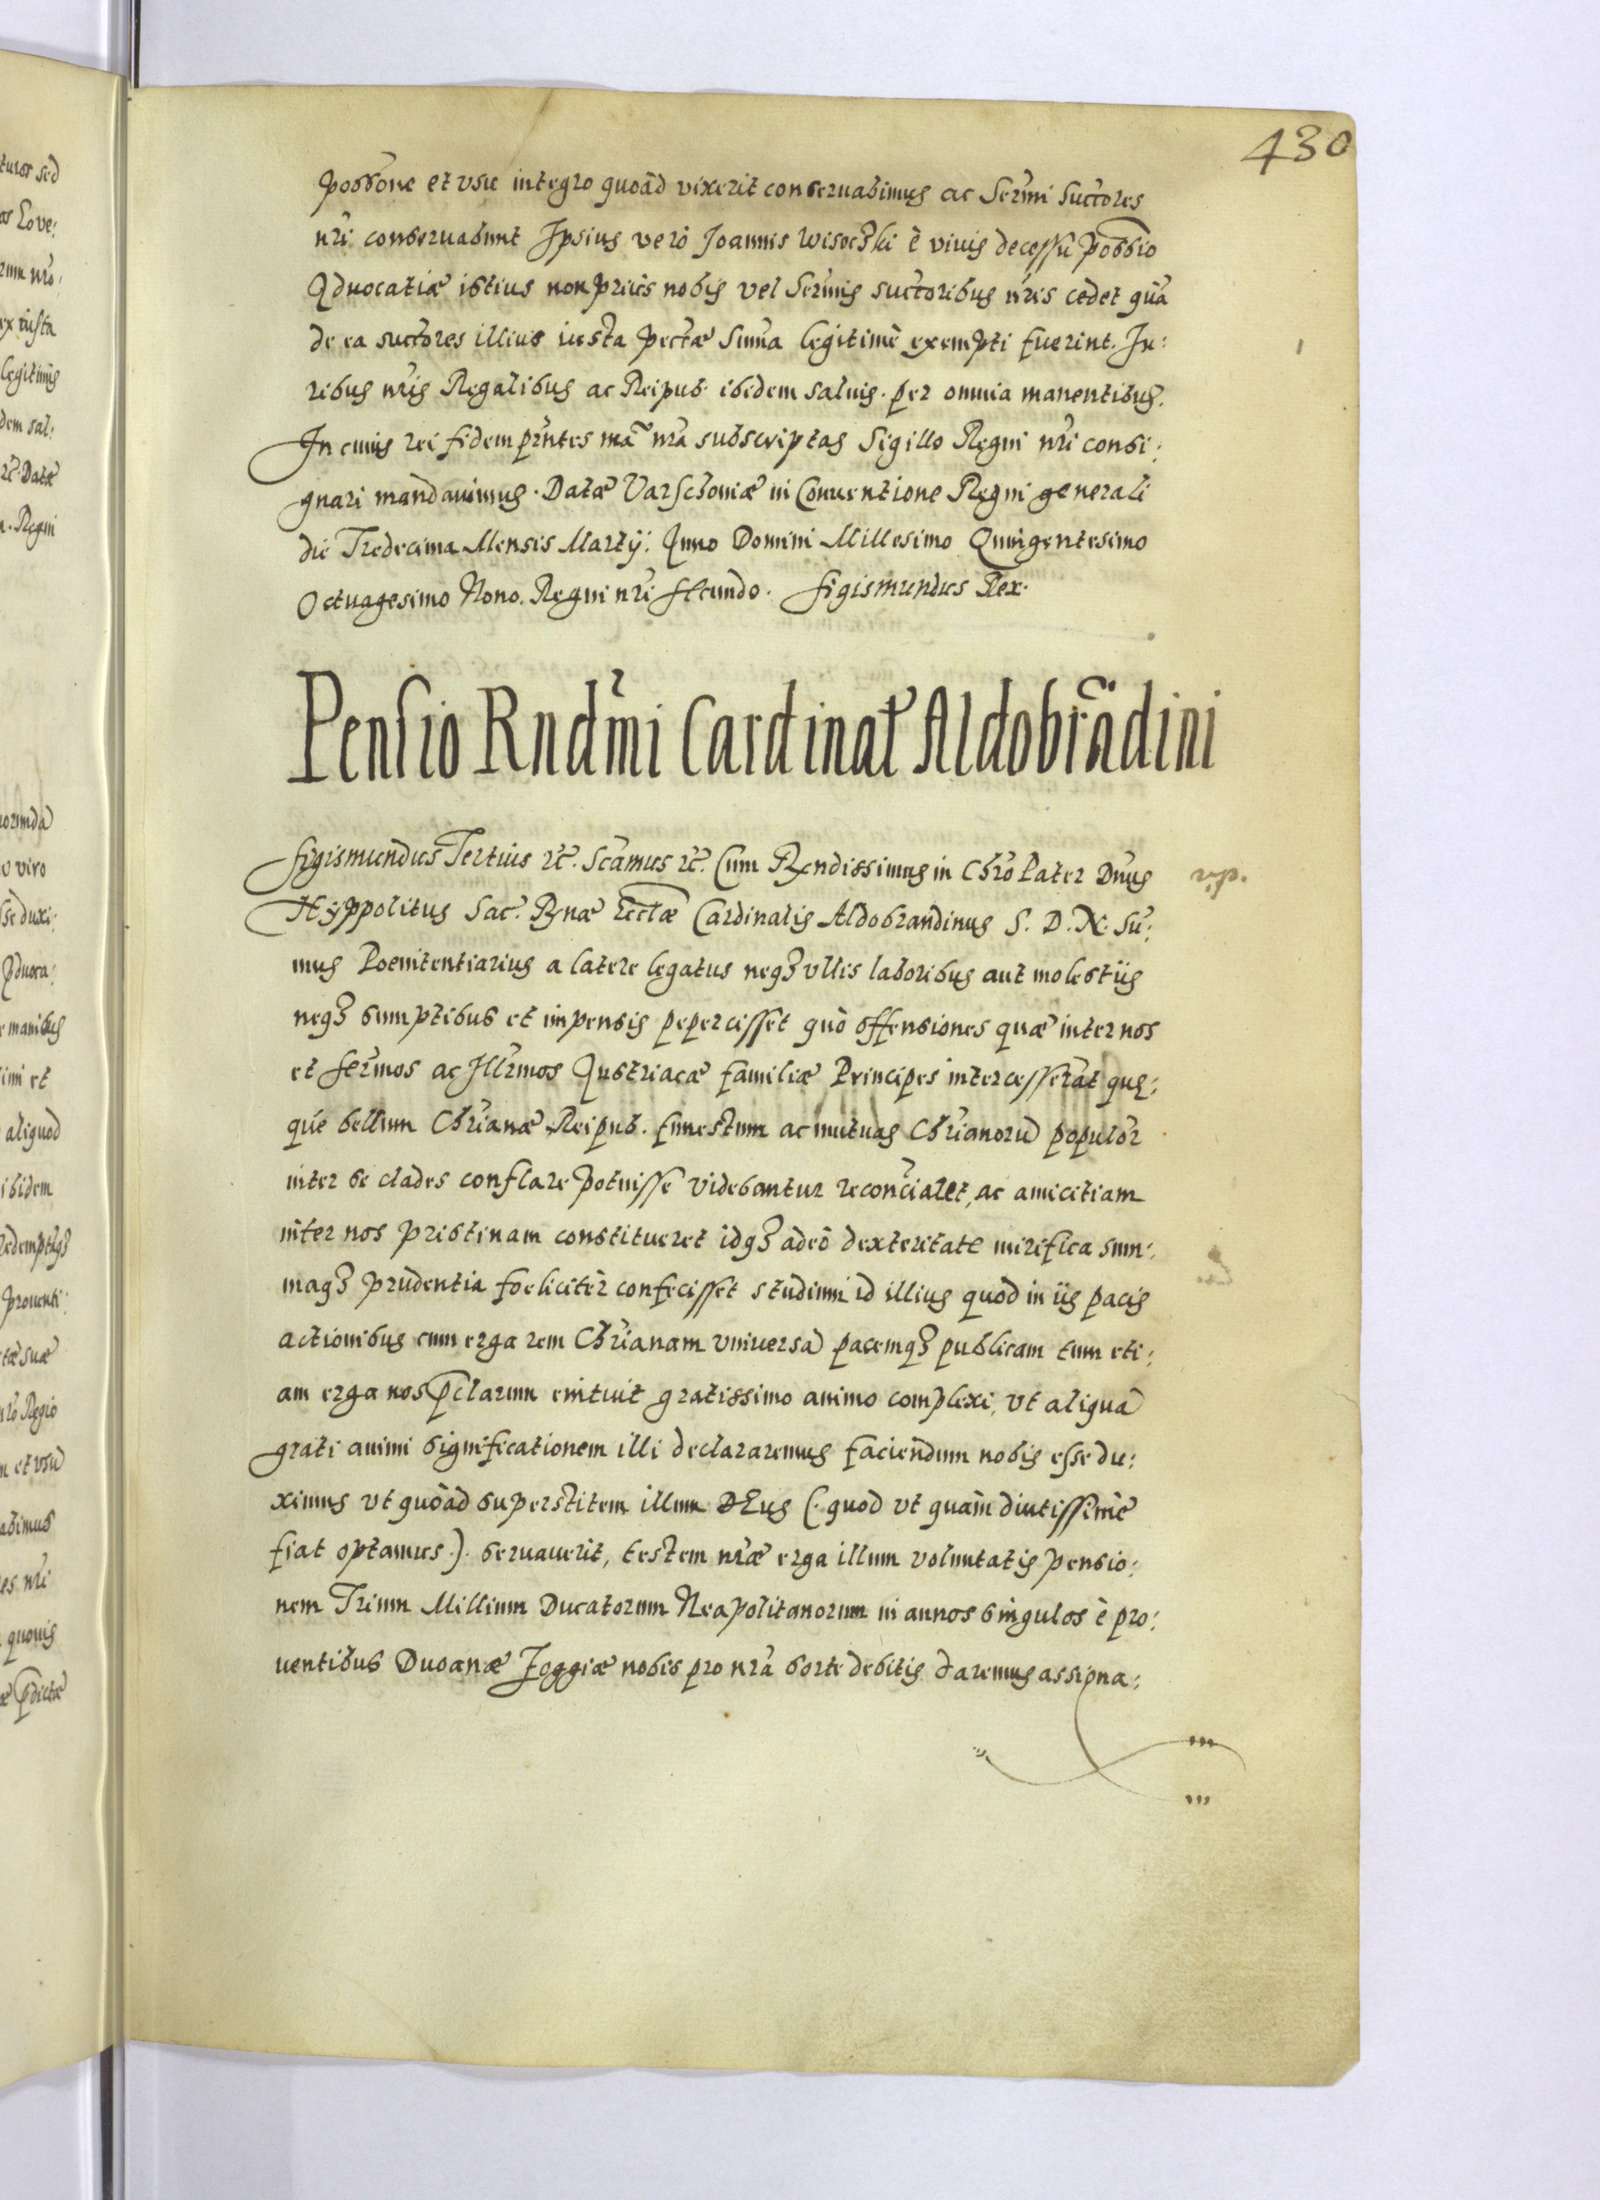 430
possone et usu integro quoad vixerit conservabimus ac Sermi Succores
nri conservabunt Ipsius vero Joannis Wisoczki è vivis decessu possio
Advocatiæ istius non prius nobis vel Sermis succoribus nris cedet qua
de ea succores illius iusta pectæ Suma legitimè exempti fuerint. Iu:
ribus nris Regalibus ac Reipub. ibidem salvis. per omnia manentibus.
In cuius rei fidem prntes ma nra subscriptas Sigillo Regni nri consi:
gnari mandavimus. Datæ Varschoviæ in Conventione Regni generali
die Tredecima Mensis Martij. Anno Domini Millesimo Quingentesimo
Octuagesimo Nono. Regni nri secundo. Sigismundus Rex.
Pensio Rndmi Cardinal Aldobradini
Sigismundus Tertius etc. Scamus etc. Cum Rendissimus in Chro Pater Dnus
Hyppolitus Sac. Rnæ Ecclæ Cardinalis Aldobrandinus S. D. N. Su:
mus Poenitentiarius a latere legatus neqз ullis laboribus aut molestiis
neqз sumptibus et impensis pepercisset quò offensiones quæ inter nos
et Sermos ac Illrmos Austriacæ familiæ Principes intercesserat quæ:
que bellum Chrianæ Reipub. funestum ac mutuas Chrianoru populor
inter se clades conflare potuisse videbantur reconciaret, ac amicitiam
inter nos pristinam constitueret idqз adeò dexteritate mirifica sum:
maqз prudentia foeliciter confecisset studium id illius quod in iis pacis
actionibus cum erga rem Chrianam universa pacemqз publicam tum eti:
am erga nos pclarum enituit gratissimo animo complexi, ut aliqua
grati animi significationem illi declararemus faciendum nobis esse du:
ximus ut quoad superstitem illum DEus (. quod ut quàm diutissimè
fiat optamus .). servaverit, testem nræ erga illum voluntatis pensio:
nem Trium Millium Ducatorum Neapolitanorum in annos singulos è pro:
ventibus Duoanæ Foggiæ nobis pro nra sorte debitis daremus assigna: